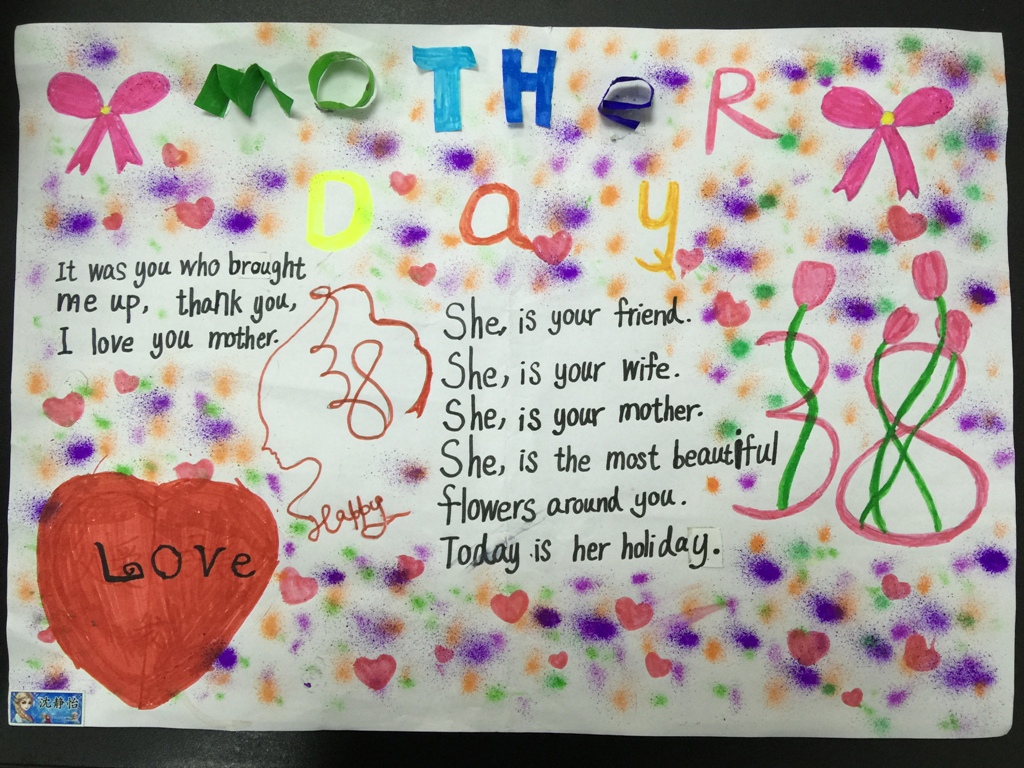 MOTHeR
Day
It was you who brought
me up, thank you,
I love you mother.
38
Happy
She, is your friend.
She, is your wife.
She, is your mother.
She, is the most beautiful
flowers around you.
Today is her holiday.
38
LOVe
沈静怡